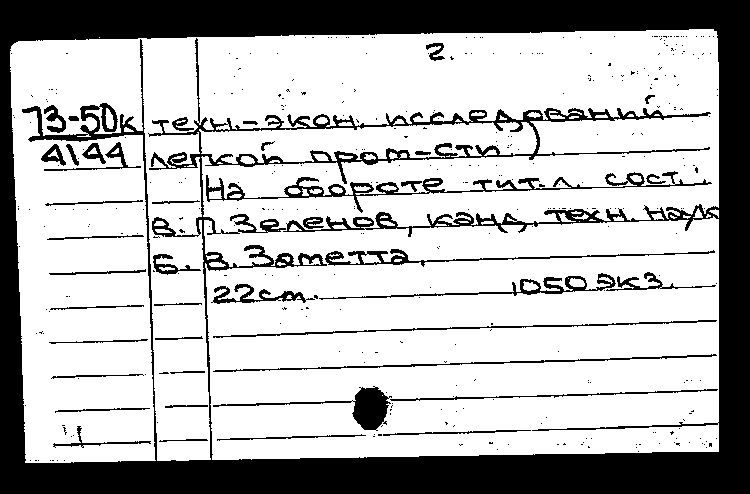 2.
73-50к техн.-экон. исследований
4144 легкой пром-сти)
На обороте тит.л. сост.:
В. П. Зеленов, канд. техн. наук
Б. В. Заметта.
22см. 1050 экз.